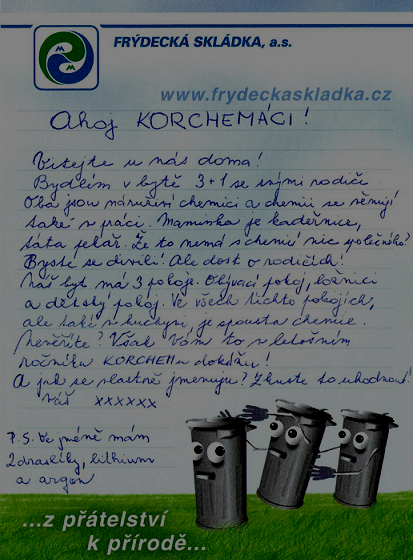 FRÝDECKÁ SKLÁDKA, a.s.
www.frydeckaskladka.cz
Ahoj KORCHEMÁCI!
Vítejte u nás doma!
Bydlím v bytě 3+1 se svými rodiči.
Oba jsou náruživí chemici a chemii se věnují
také v práci. Maminka je kadeřnice,
táta pekař. Že to nemá s chemií nic společného?
Byste se divili! Ale dost o rodičích!
Náš byt má 3 pokoje. Obývací pokoj, ložnici
a dětský pokoj. Ve všech těchto pokojích,
ale také v kuchyni, je spousta chemie.
Nevěříte? Však Vám to v letošním
ročníku KORCHEMu dokážu!
A jak se vlastně jmenuju? Zkuste to uhodnout!
Váš xxxxxx
P.S. Ve jméně mám
2 draslíky, lithium
a argon
...z přátelství
k přírodě...